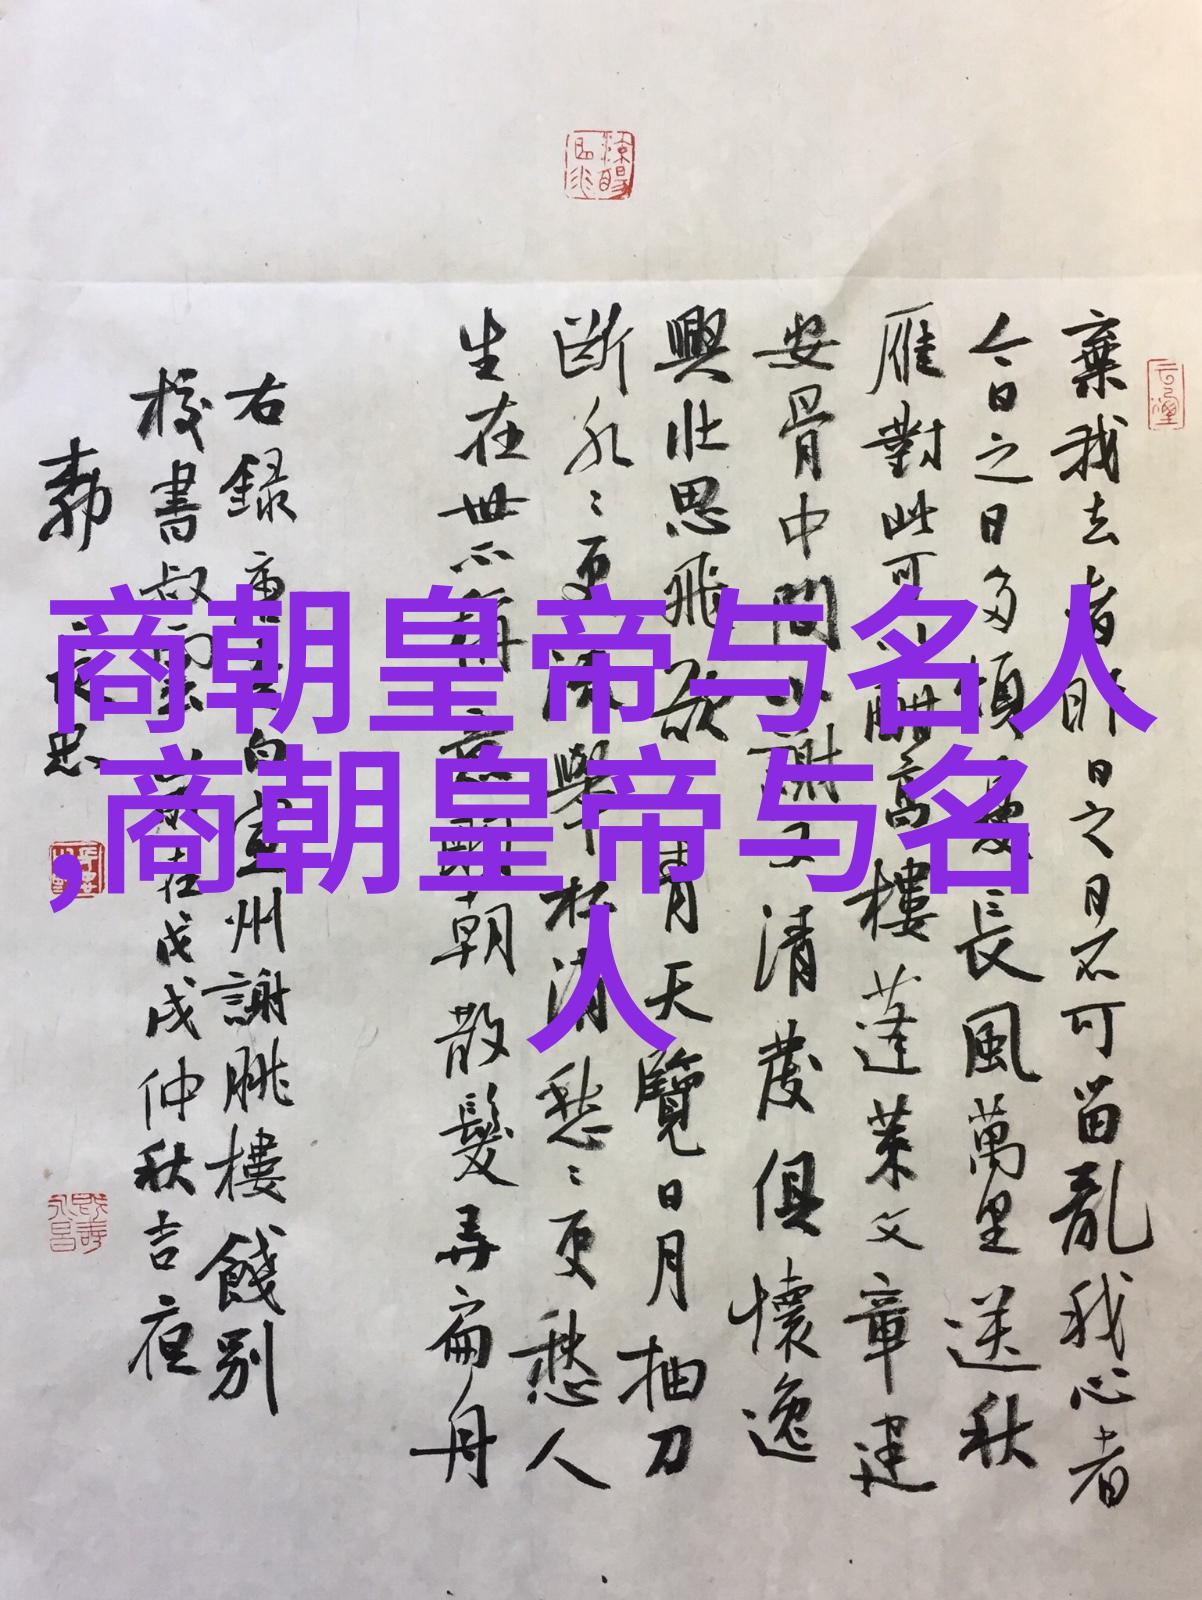 棄我去者昨日之日不可留亂我心者
今日之日多煩憂長風萬里送秋
雁對此可以酣高樓蓬萊文章建
安骨中間小謝又清發俱懷逸
興壯思飛欲上青天覽日月抽刀
斷水〻更流舉杯消愁〻更愁人
生在世不稱意明朝散髮弄扁舟
右録唐李白宣州謝朓樓餞別
校書叔雲 在戊戌仲秋吉夜
商朝皇帝与名人
,商朝皇帝与名
人